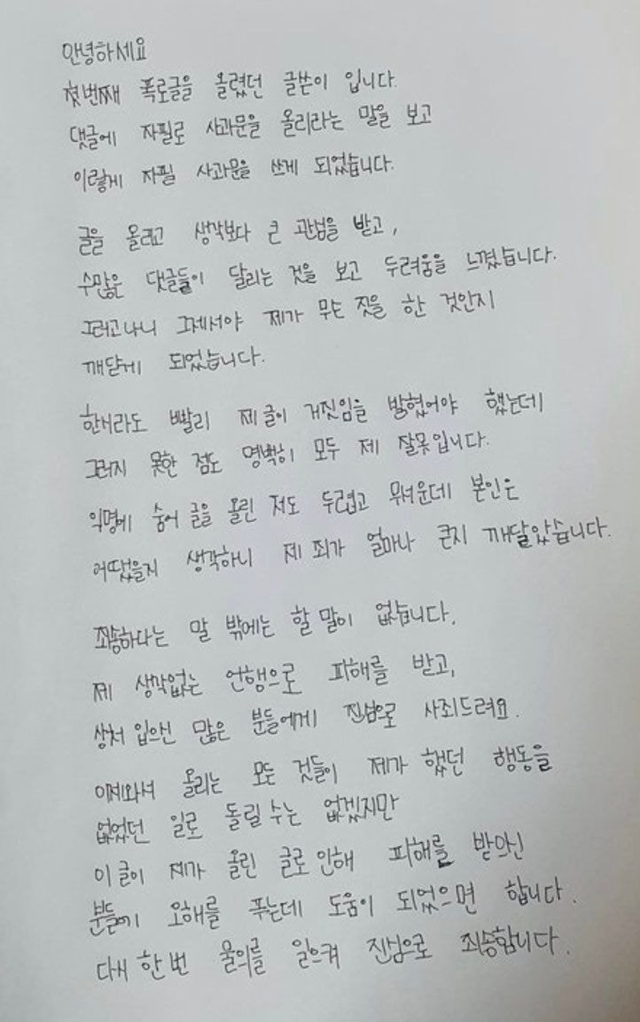 안녕하세요
첫번째 폭로글을 올렸던 글쓴이 입니다.
댓글에 자필로 사과문을 올리라는 말을 보고
이렇게 자필 사과문을 쓰게 되었습니다.
글을 올리고 생각보다 큰 관심을 받고,
수많은 댓글들이 달리는 것을 보고 두려움을 느꼈습니다.
그러고나니 그제서야 제가 무슨 짓을 한 것인지
깨닫게 되었습니다.
한시라도 빨리 제 글이 거짓임을 밝혔어야 했는데
그러지 못한 점도 명백히 모두 제 잘못입니다.
익명에 숨어 글을 올린 저도 두렵고 무서운데 본인은
어땠을지 생각하니 제 죄가 얼마나 큰지 깨달았습니다.
죄송하다는 말 밖에는 할 말이 없습니다.
제 생각없는 언행으로 피해를 받고,
상처 입으신 많은 분들에게 진심으로 사죄드려요.
이제와서 올리는 모든 것들이 제가 했던 행동을
없었던 일로 돌릴 수는 없겠지만
이 글이 제가 올린 글로 인해 피해를 받으신
분들에게 오해를 푸는데 도움이 되었으면 합니다.
다시 한 번 물의를 일으켜 진심으로 죄송합니다.